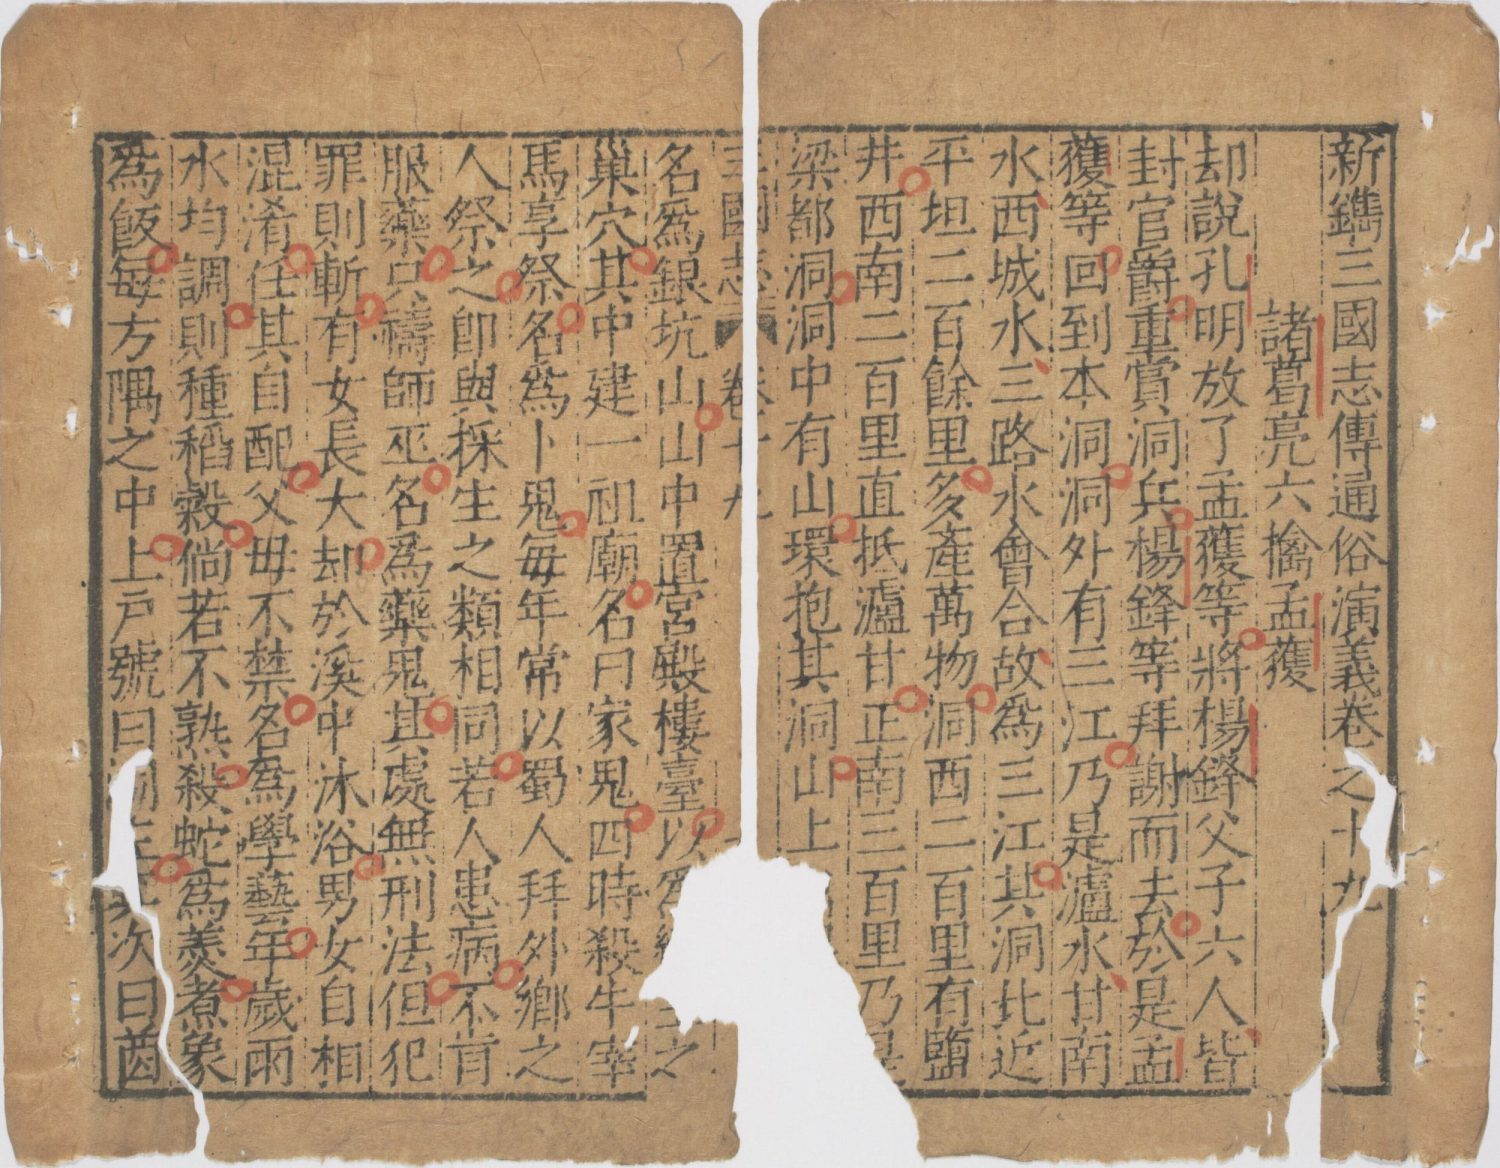 新鐫三國志傳通俗演義卷之十九
諸葛亮六擒孟獲
却說孔明放了孟獲等將楊鋒父子六人皆
封官爵重賞洞兵楊鋒等拜謝而去於是孟
獲等回到本洞洞外有三江乃是瀘水甘南
水西城水三路水會合故為三江其洞北近
平坦二百餘里多產萬物洞西二百里有鹽
井西南二百里直抵瀘甘正南三百里乃是
梁都洞洞中有山環抱其洞山上
三國志 卷十九
名為銀坑山山中置宮殿樓臺以為 之
巢穴其中建一祖廟名曰家鬼四時殺牛宰
馬享祭名為卜鬼每年常以蜀人拜外鄉之
人祭之即與採生之類相同若人患病不肯
服藥只禱師巫名為藥鬼其處無刑法但犯
罪則斬有女長大却於溪中沐浴男女自相
混淆任其自配父母不禁名為學藝年歲雨
水均調則種稻穀倘若不熟殺蛇為羹煮象
為飯每方隅之中上戶號曰洞主 次曰酋